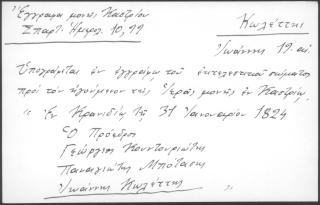 Ἔγγραφα μονῆς Καστρίου
Σπαρτ. Ἡμερολ. 10, 99
Κωλέττης
Ἰωάννης 19. αἰ.
Ὑπογράφεται ἐν ἐγγράφῳ τοῦ ἐκτελεστικοῦ σώματος
πρὸς τὸν ἡγούμενον τῆς Ἱερᾶς μονῆς ἐν Καστρίῳ,
"Ἐν Κρανιδίῳ τῇ 31 Ἰανουαρίου 1824
Ὁ Πρόεδρος
Γεώργιος Κουντουριώτης
Παναγιώτης Μπότασης
Ἰωάννης Κωλέττης "